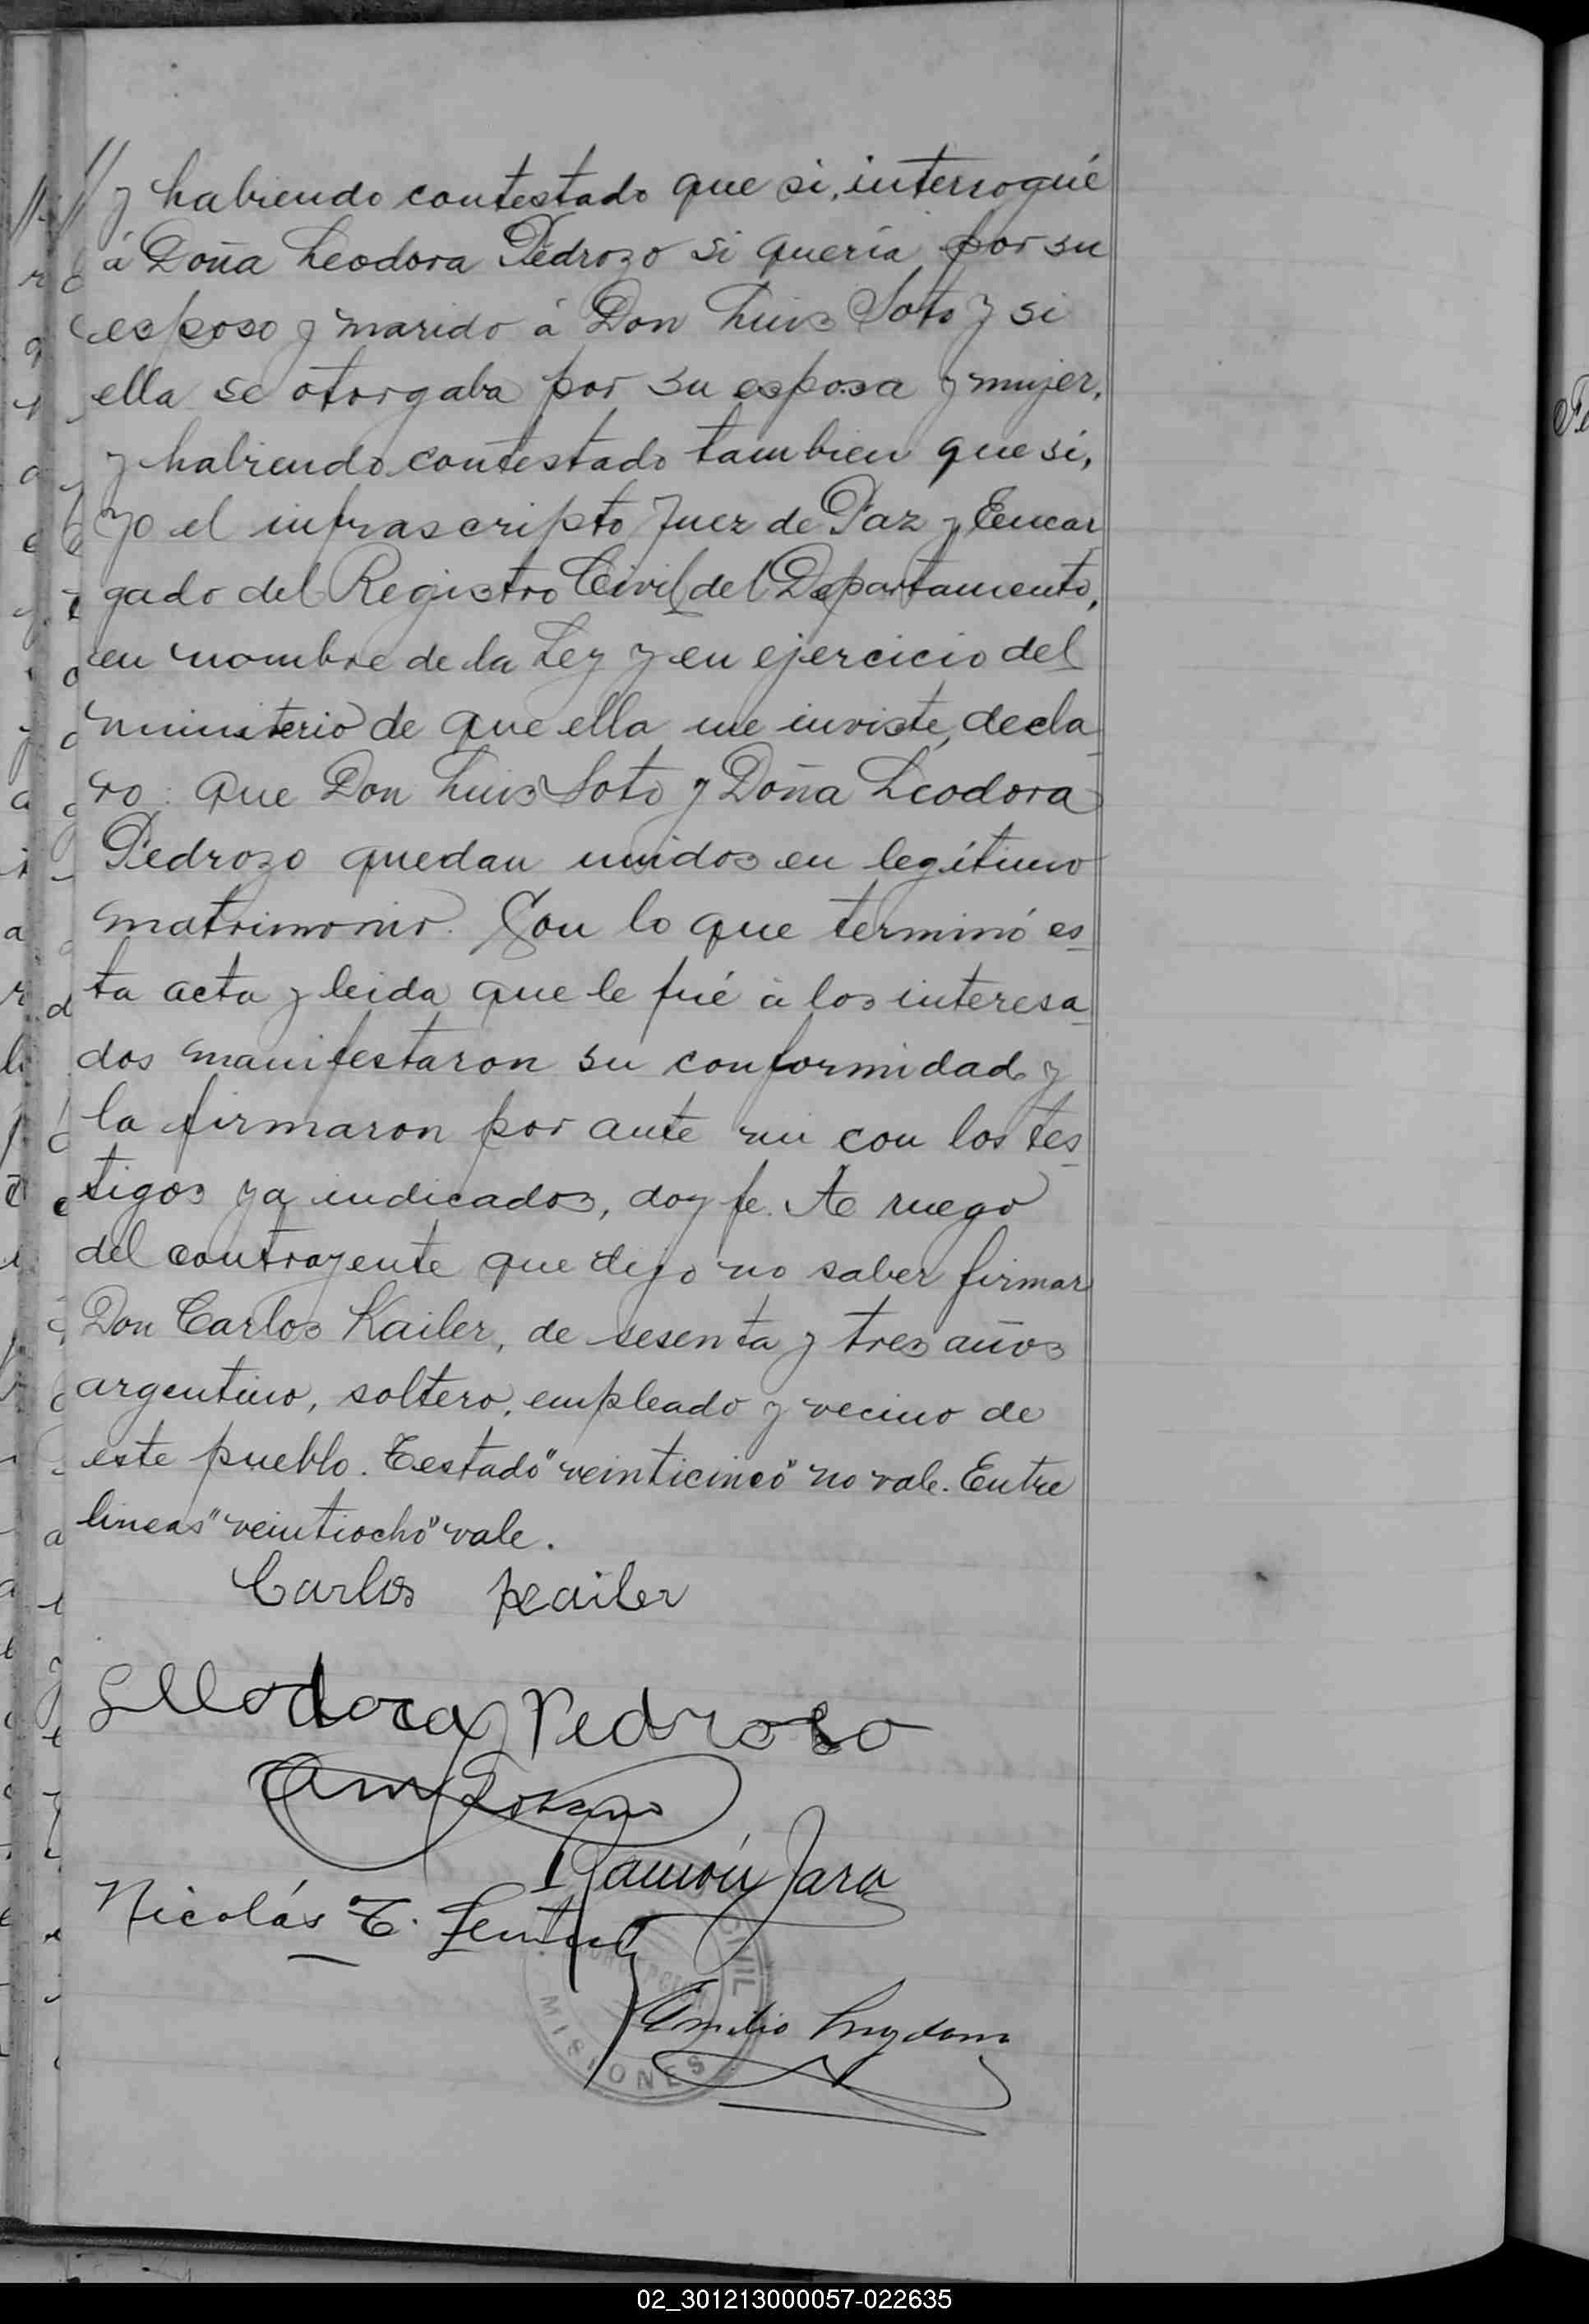 // y habiendo contestado que si, interrogué
á Doña Leodora Pedrozo si quería por su
esposo y marido á Don Luis Soto y si
ella se otorgaba por su esposa y mujer,
y habiendo contestado tambien que si,
yo el infrascripto Juez de Paz y Encar
gado del Registro Civil del Departamento,
en nombre de la Ley y en ejercicio del
ministerio de que ella me inviste, decla
ro: que Don Luis Soto y Doña Leodora
Pedrozo quedan unidos en legítimo
matrimonio. Con lo que terminó es
ta acta y leida que le fué á los interesa
dos manifestaron su conformidad y
la firmaron por ante mi con los tes
tigos ya indicados, doy fe. A ruego
del contrayente que dijo no saber firmar
Don Carlos Kailer, de sesenta y tres años
argentino, soltero, empleado y vecino de
este pueblo. Testado "veinticinco" no vale. Entre
lineas "veintiocho" vale.
Carlos Kailer
Lleodora Pedroso
Ramón Jara
Nicolás T.
Emilio
CIVIL
MISIONES
02_301213000057-022635